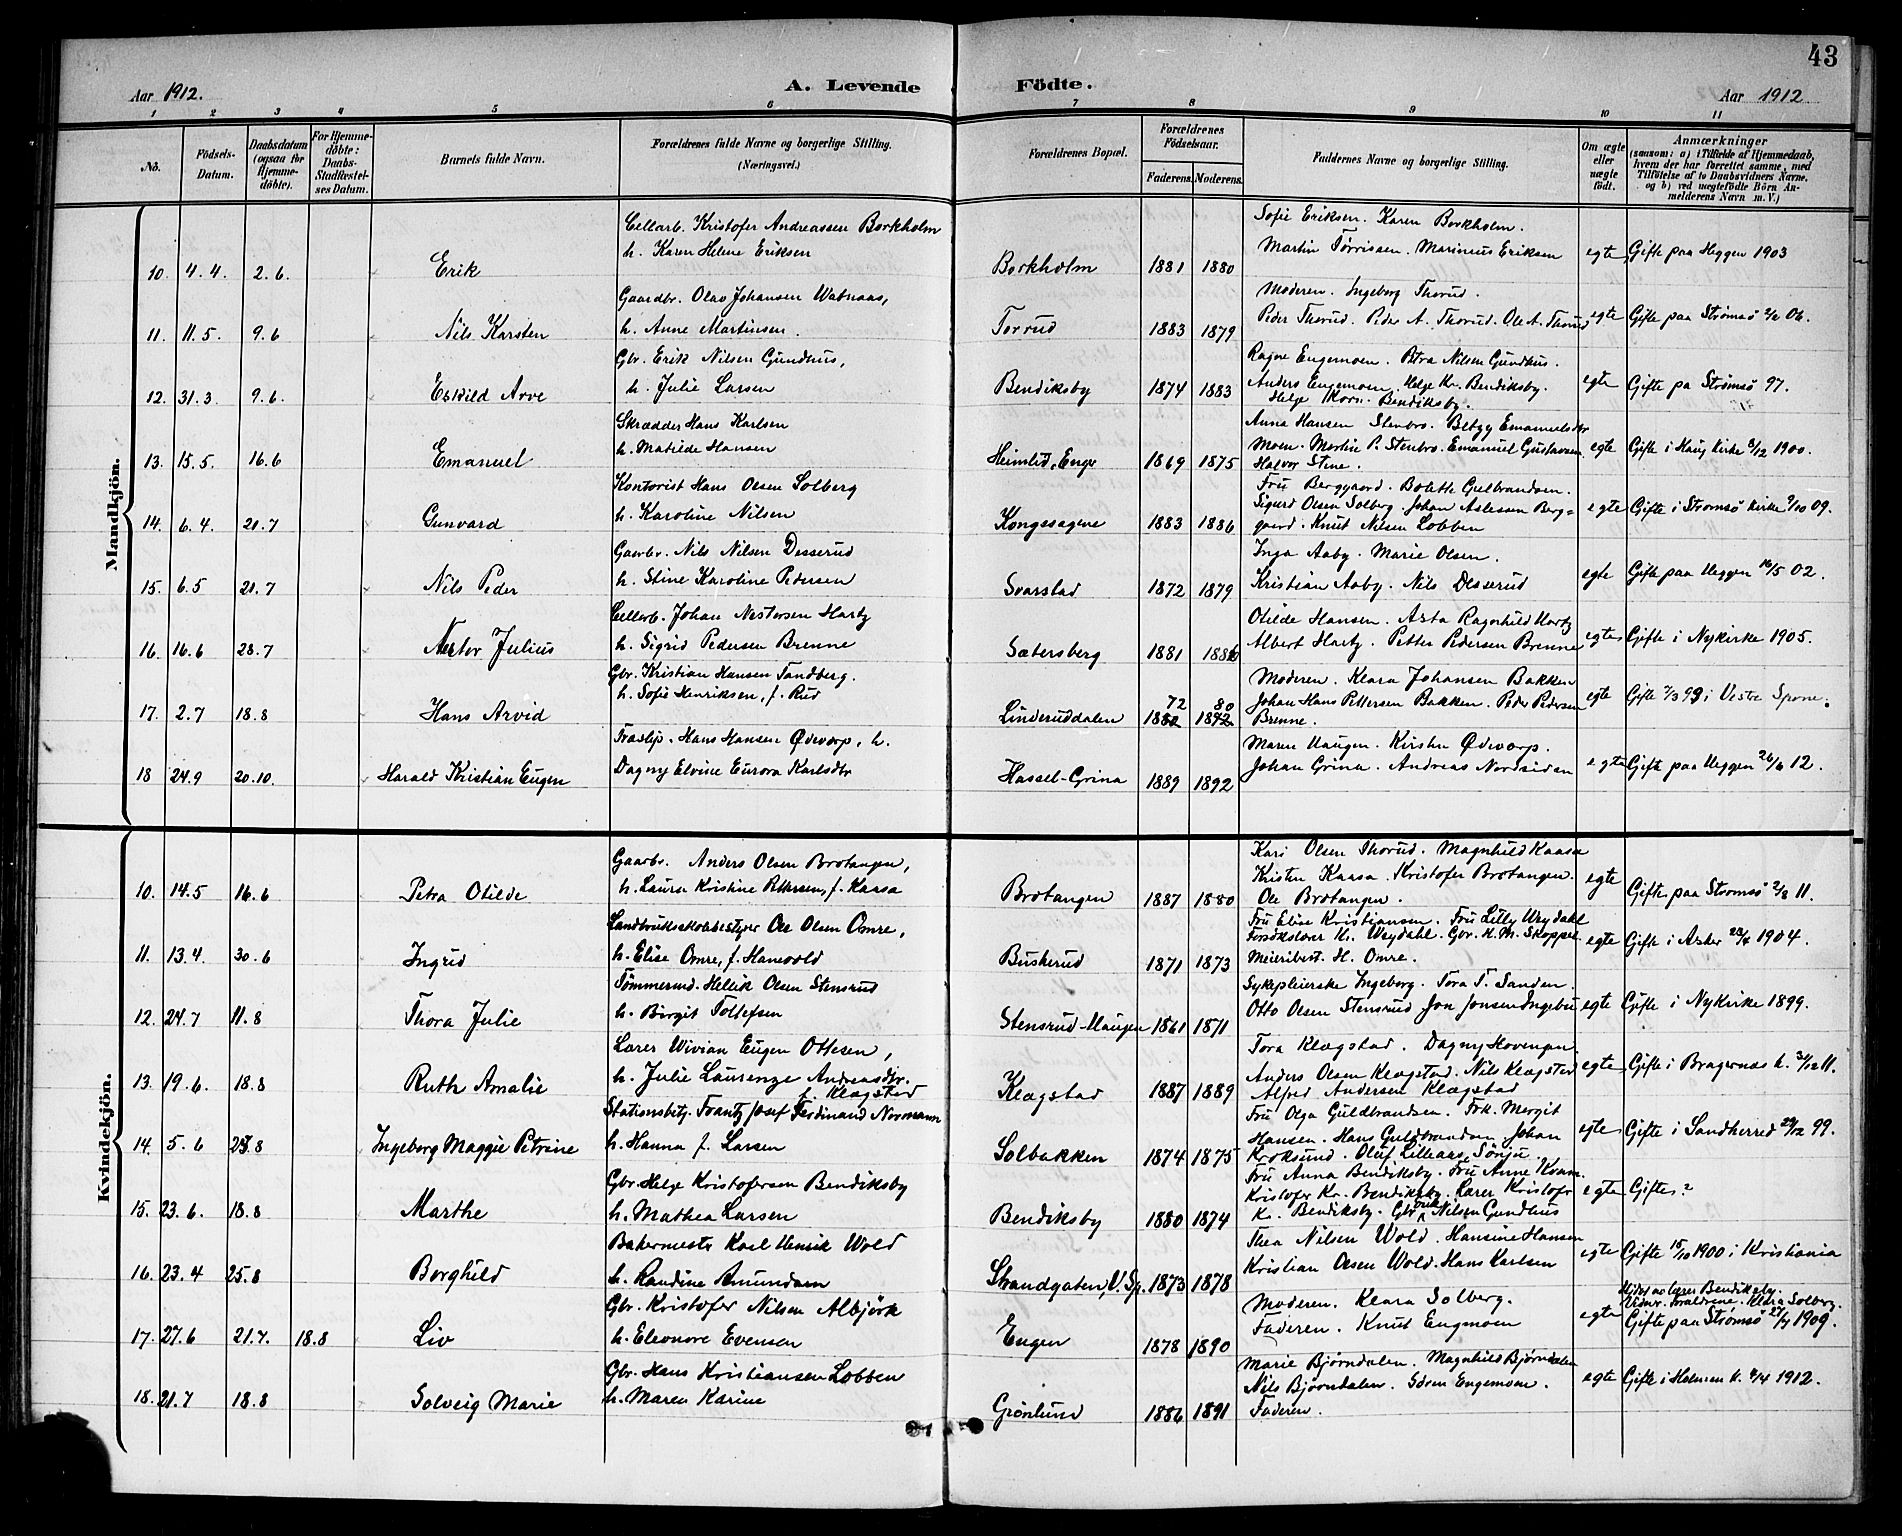 43
Aar 1912. A. Levende Födte. Aar 1912
1 2 3 4 5 6 7 8 9 10 11
No. Födsels-Datum. Daabsdatum (ogsaa for Hjemme-döbte). For Hjemme-döbte: Daabs-Stadfæstel-ses Datum. Barnets fulde Navn. Forældrenes fulde Navne og borgerlige Stilling. (Næringsvei.) Forældrenes Bopæl. Forældrenes Födselsaar. Faderens. Moderens. Faddernes Navne og borgerlige Stilling. Om ægte eller uægte födt. Anmærkninger (saasom: a) i Tilfælde af Hjemmedaab, hvem der har forrettet samme, med Tilföielse af to Daabsvidners Navne, og b) ved uægtefödte Börn An-melderens Navn m. V.)
Mandkjön.
Cellarb. Kristofer Andreassen Borkholm Sofie Eriksen. Karen Borkholm.
h. Karen Helene Eriksen Martin Tørrissen. Marinius Eriksen
10. 4.4. 2.6. Erik Borkholm 1881 1880 egte Gifte paa Heggen 1903
Gaardbr. Olav Johansen Watnaas, Moderen. Ingeborg Thorud.
11. 11.5. 9.6 Nils Karsten h. Anne Martinsen. Torrud 1883 1879 Peder Thorud. Peder A. Thorud. Ole A. Thorud egte Gifte paa Strømsø 06.
Gbr. Erik Nilsen Gundhus, Ragne Engemoen. Petra Nilsen Gundhus.
12. 31.3. 9.6. Eskild Arve h. Julie Larsen Bendiksby 1874 1883 Anders Engemoen. Helge Kr. Bendiksby. egte Gifte pa Strømsö 97.
Helje Bendiksby.
Skrædder Hans Karlsen Anna Hansen Stenbro. Betzy Emanuelsdtr
13. 15.5. 16.6 Emanuel h. Matilde Hansen Heimlid, Enger 1869 1875 Moen. Martin P. Stenbro. Emanuel Gustavsen. egte Gifte i Haug Kirke 8/12 1900.
Halvor Stine.
Kontorist Hans Olsen Solberg Fru Berggaard. Bolette Gulbrandsen.
14. 6.4. 21.7 Gunvard h. Karoline Nilsen Kongssagene 1883 1886 Sigurd Olsen Solberg. Johan Aslesen Berg=
gaard. Knut Nilsen Lobben egte Gifte i Strømsö Kirke 9/10 09.
Gaarbr. Nils Nilsen Desserud Inga Aaby. Marie Olsen.
15. 6.5 21.7 Nils Peder h. Stine Karoline Pedersen Svarstad 1872 1879 Kristian Aaby. Nils Desserud egte Gifte paa Heggen 16/5 02.
Cellarb. Johan Nestorsen Hartz Otilde Hansen. Asta Ragnhild Hartz
16. 16.6 28.7 Nestor Julius h. Sigrid Pedersen Brenne Sætersberg 1881 1886 Albert Hartz. Petter Pedersen Brenne egte Gifte i Nykirke 1905.
Gbr. Kristian Hansen Tandberg. Moderen. Klara Johansen Bakken
h. Sofie Henriksen, f. Rud Johan Hans Pettersen Bakken. Peder Pedersen
17. 2.7 18.8 Hans Arvid Linderuddalen 72 1882 80 1892 Brenne. egte Gifte 7/3 99 i Vestre Spone.
Træslip. Hans Hansen Ødevorp, h. Maren Haugen. Kirsten Ødevorp.
18 24.9 20.10. Harald Kristian Eugen Dagny Elvine Eurora Karlsdtr Hassel-Grina 1889 1892 Johan Grina. Andreas Nordsiden egte Gifte paa Heggen 26/6 12.
Kvindekjön.
Gaarbr. Anders Olsen Brotangen, Kari Olsen Thorud. Magnhild Kaasa
10. 14.5 16.6 Petra Otilde h. Laura Kristine Pettersen, f. Kaasa Brotangen 1887 1880 Kristen Kaasa. Kristofer Brotangen. egte Gifte paa Strømsö 2/8 11.
Ole Brotangen.
Landbruksskolebestyrer Ole Olsen Omre, Fru Elise Kristiansen. Fru Lilly Weydahl
Forsökslærer K. Weydahl. Gbr. H. M. Skoppel
11. 13.4. 30.6 Ingrid h. Elise Omre, f. Hanevold Buskerud 1871 1873 Meieribest. H. Omre. egte Gifte i Asker 23/4 1904.
Tömmermd. Hellik Olsen Stensrud Sykepleierske Ingeborg. Tora T. Sanden.
12. 24.7 11.8 Thora Julie h. Birgit Tollefsen Stensrud-Haugen 1861 1871 Otto Olsen Stensrud Jon Jonsen Ingebu egte Gifte i Nykirke 1899.
Lærer Wivian Eugen Ottesen, Tora Klægstad. Dagny Hovengen
13. 19.6. 18.8 Ruth Amalie h. Julie Laurenze Andreasdtr. f. Klægstad Klægstad 1887 1889 Anders Olsen Klægstad. Nils Klægstad egte Gifte i Bragernæs k. 3/12 11.
Alfred Andersen Klægstad
Stationsbetj. Frantz Josef Ferdinand Normann Fru Olga Guldbrandsen. Frk. Mergit
14. 5.6 25.8 Ingeborg Maggie Petrine h. Hanna f. Larsen Solbakken 1874 1875 Hansen. Hans Guldbrandsen Johan egte Gifte i Sandherred 29/12 99.
Kroksund. Oluf Lilleaas, Sönju
Gbr. Helge Kristofersen Bendiksby Fru Anna Bendiksby. Fru Anne Kvam.
15. 23.6. 18.8 Marthe h. Mathea Larsen Bendiksby 1880 1874 Kristofer Kr. Bendiksby. Lærer Kristofr egte Giftes?
K. Bendiksby. Gbr Erik Nilsen Gundhus
Bakermester Karl Henrik Wold Thea Nilsen Wold. Hansine Hansen
16. 23.4 25.8 Borghild h. Randine Amundsen Strandgaten, V. Sp. 1873 1878 Kristian Olsen Wold. Hans Karlsen egte Gifte 15/10 1900 i Kristiania
Gbr. Kristofer Nilsen Albjörk Moderen. Klara Solberg. Hjdøpt av lærer Bendiksby.
Vidnr. Foraldrene. Klara Solberg.
17. 27.6 21.7. 18.8 Liv h. Eleonore Evensen Engen 1878 1890 Faderen. Knut Engmoen egte Gifte paa Strømsö 27/7 1909.
Gbr. Hans Kristiansen Lobben Marie Bjørndalen. Magnhild Bjørndalen
18. 21.7 18.8 Solveig Marie h. Maren Karine Grönlund 1886 1891 Nils Bjørndalen. Sören Engemoen. egte Gifte i Holmen k. 8/4 1912.
Faderen.